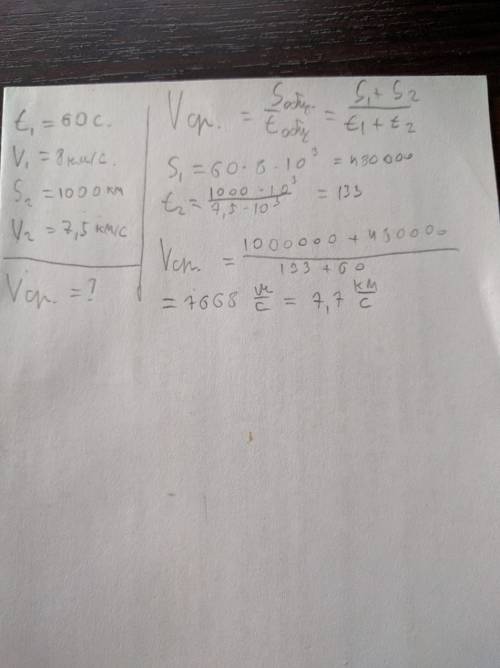 t₁ = 60 с.
V₁ = 8 км/с.
S₂ = 1000 км
V₂ = 7,5 км/с
Vср. = ?
Vср. = Sобщ. / tобщ = S₁ + S₂ / t₁ + t₂
S₁ = 60 · 8 · 10³ = 480000
t₂ = 1000 · 10³ / 7,5 · 10³ = 133
Vср. = 1000000 + 480000 / 133 + 60
= 7668 м/с = 7,7 км/с